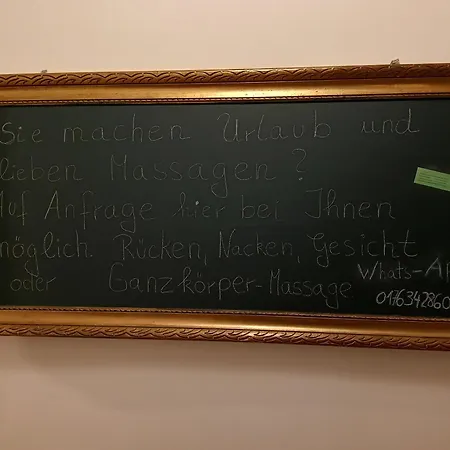 Sie machen Urlaub und
lieben Massagen?
Auf Anfrage hier bei Ihnen
möglich Rücken, Nacken, Gesicht
oder Ganzkörper-Massage
Whats-Ap
0176342860